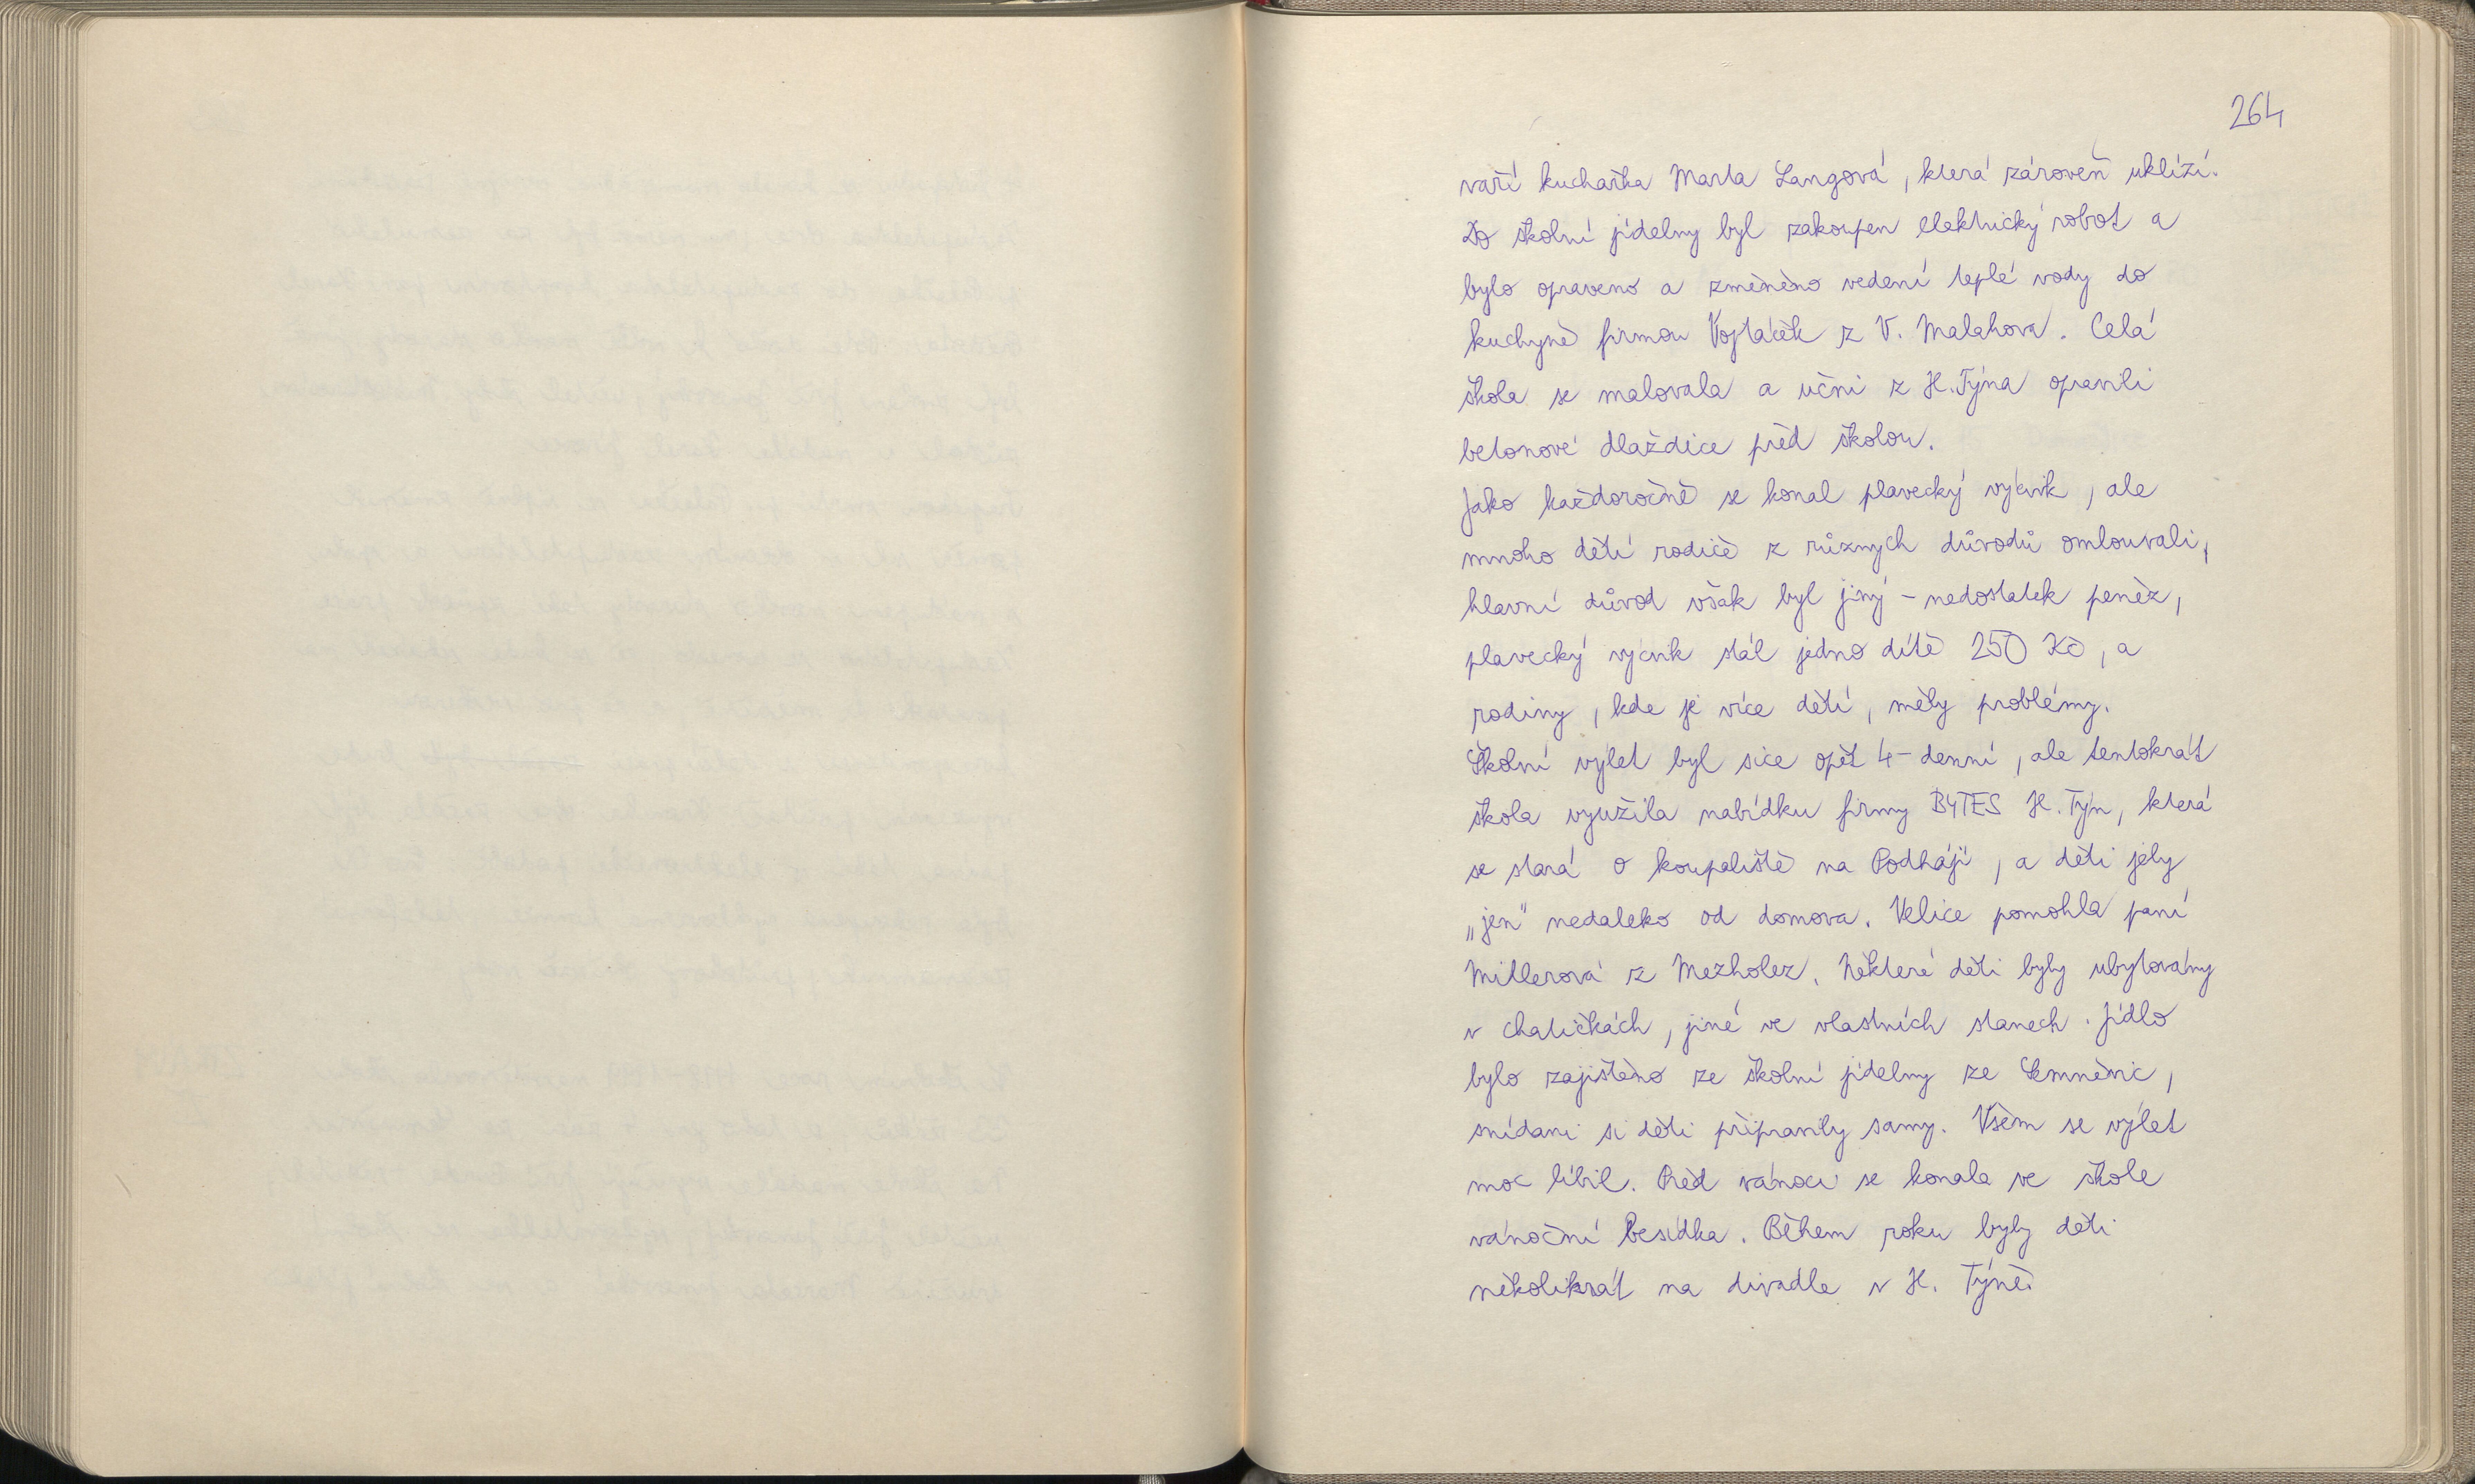 264
vaří kuchařka Marta Langová, která zároveň uklízí.
Do školní jídelny byl zakoupen elektrický robot a
bylo opraveno a změněno vedení teplé vody do
kuchyně firmou Vojtáček z V. Malahova. Celá
škola se malovala a učni z H. Týna opravili
betonové dlaždice před školou.
Jako každoročně se konal plavecký výcvik, ale
mnoho dětí rodiče z různých důvodů omlouvali,
hlavní důvod však byl jiný - nedostatek peněz,
plavecký výcvik stál jedno dítě 250 Kč, a
rodiny, kde je více dětí, měly problémy.
Školní výlet byl sice opět 4-denní, ale tentokrát
škola využila nabídku firmy BYTES H. Týn, která
se stará o koupaliště na Podhájí, a děti jely
„jen" nedaleko od domova. Velice pomohla paní
Millerová z Mezholez. Některé děti byly ubytovány
v chatičkách, jiné ve vlastních stanech. Jídlo
bylo zajištěno ze školní jídelny ze Semněvic,
snídani si děti připravily samy. Všem se výlet
moc líbil. Před vánoci se konala ve škole
vánoční besídka. Během roku byly děti
několikrát na divadle v H. Týně.